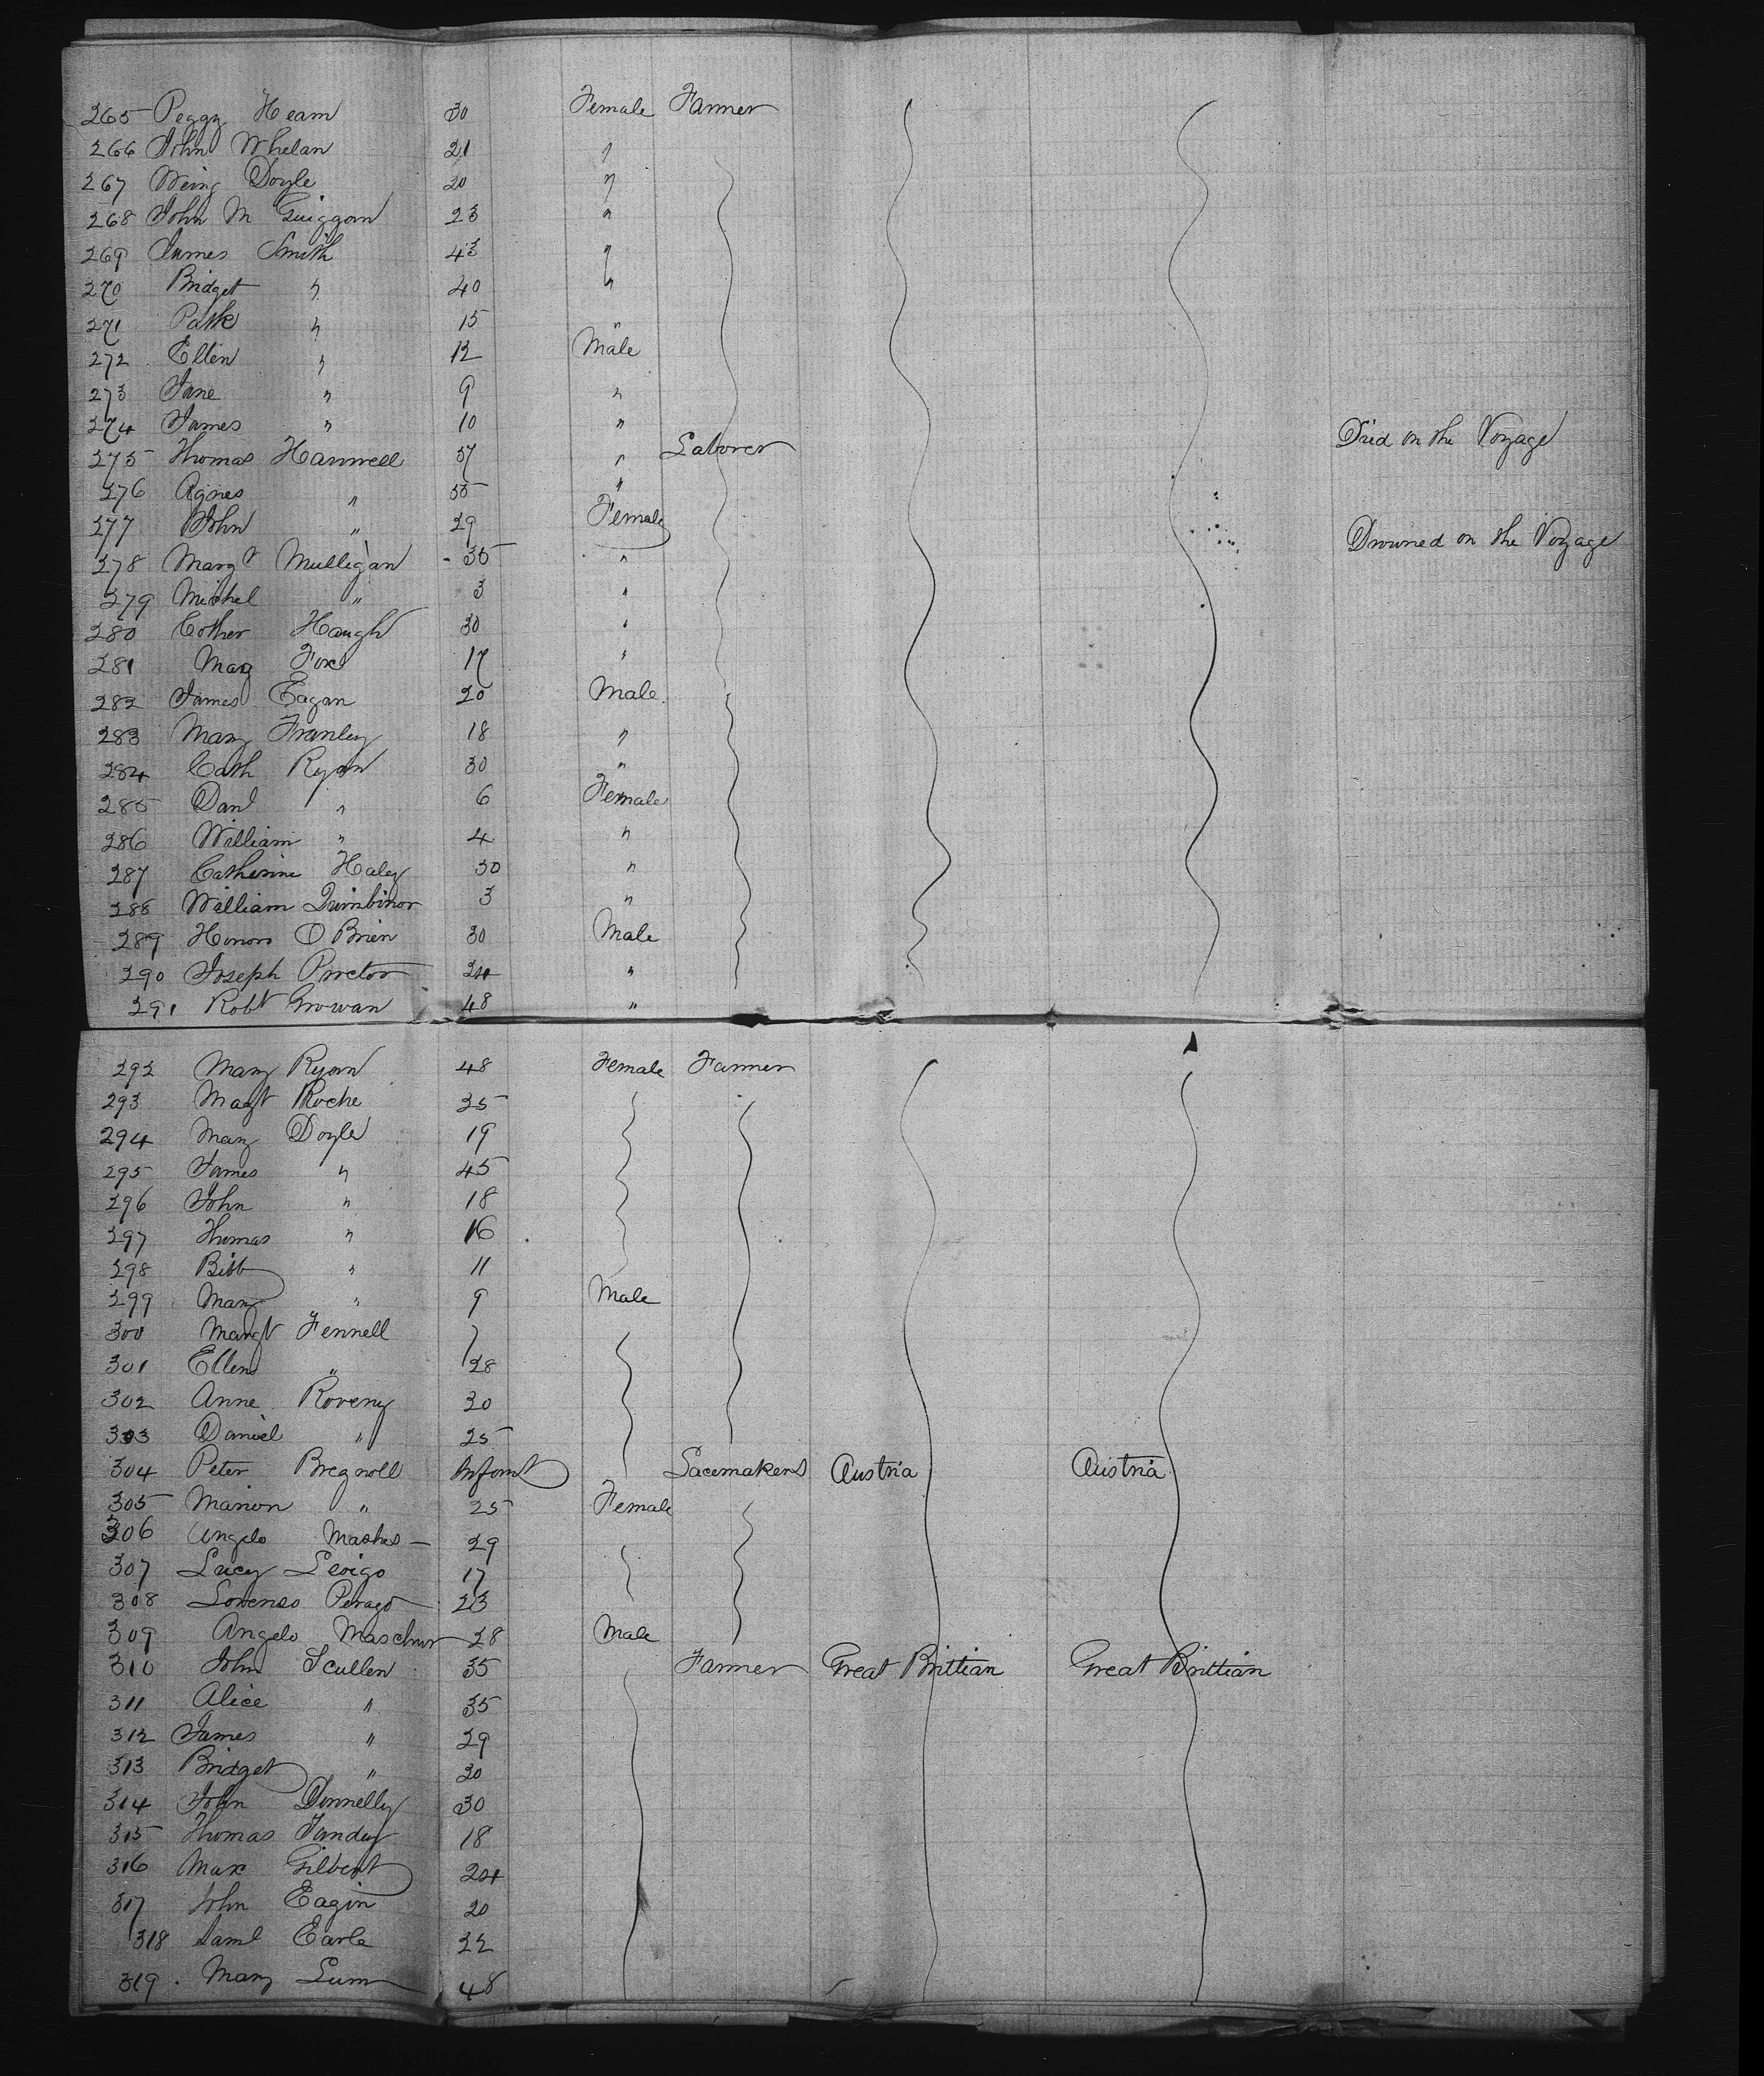 265 Peggy Heam 30 Female Farmer
266 John Whelan 21 "
267 Doyle 20 "
268 John M Guiggan 23 "
269 James Smith 43 "
270 Bridget " 40 "
271 Patk " 15 "
272 Ellen " 12 Male
273 Jane " 9 "
274 James " 10 "
275 Thomas Hanwell 57 " Laborer Died on the Voyage
276 Agnes " 55 "
277 John " 29 Female
278 Margt Mulligan 35 " Drowned on the Voyage
279 Michel " 3 "
280 Cother Haugh 30 "
281 Mary Fox 17 "
282 James Eagan 20 Male
283 Mary Franley 18 "
284 Cath Ryan 30 "
285 Danl " 6 Female
286 William " 4 "
287 Catherine Haley 30 "
288 William 3 "
289 Honora O Brien 30 Male
290 Joseph Proctor 24 "
291 Robt Growan 48 "
292 Mary Ryan 48 Female Farmer
293 Magt Roche 25
294 Mary Doyle 19
295 James " 45
296 John " 18
297 Thomas " 16
298 Bibb " 11
299 Mary " 9 Male
300 Margt Fennell 7
301 Ellen " 28
302 Anne Roveny 20
303 Daniel " 25
304 Peter Bregnoll Infant Lacemakers Austria Austria
305 Marion " 25 Female
306 Angelo Mashes 29
307 Lucy 17
308 Lorenso Perago 23
309 Angelo 28 Male
310 John Scullen 35 Farmer Great Brittian Great Brittian
311 Alice " 35
312 James " 29
313 Bridget " 20
314 John Donnelly 30
315 Thomas 18
316 Max Gilbert 24
317 John Eagin 20
318 Saml Earle 22
319 Mary Lum 48